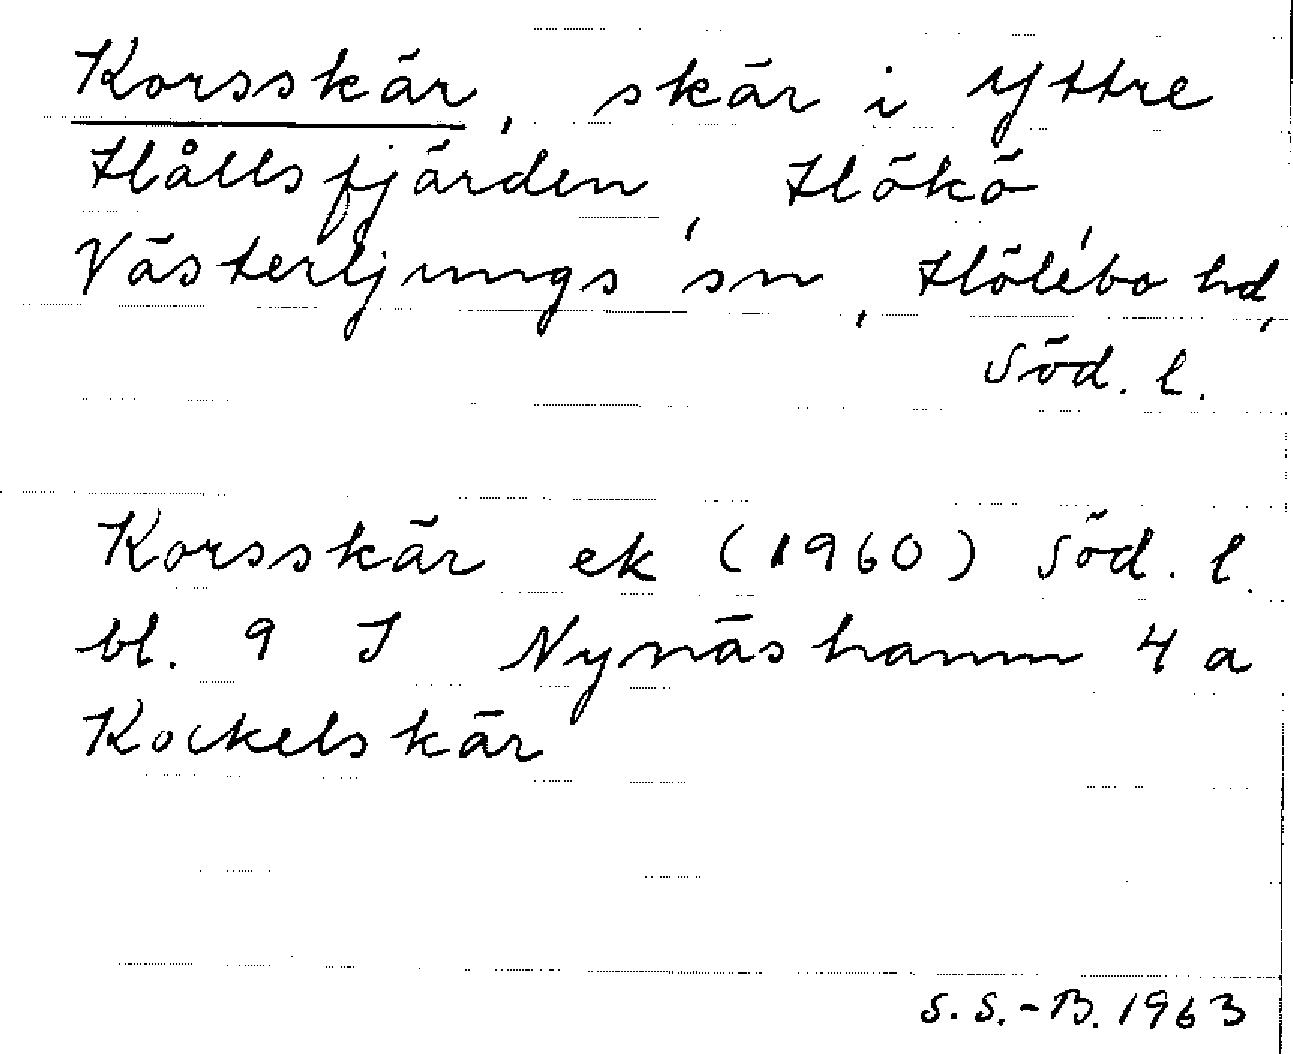 Korsskär, skär i Yttre
Hållsfjärden, Hökö,
Västerljungs sn, Hölebo hd,
Söd. l.
Korsskär ek (1960) Söd. l.
bl. 9 I Nynäshamn 4 a
Kockelskär
S. S.-B. 1963